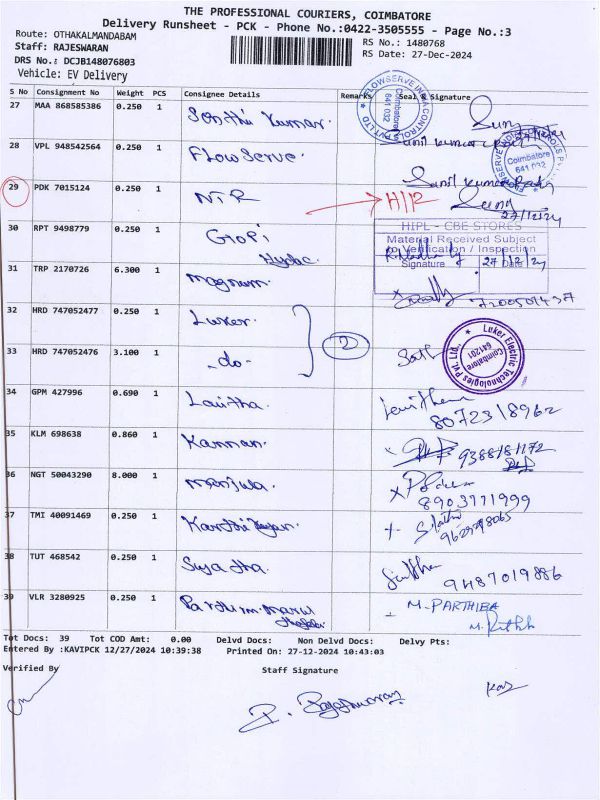 THE PROFESSIONAL COURIERS, COIMBATORE
Delivery Runsheet - PCK - Phone No.:0422-3505555 - Page No.:3
Route: OTHAKALMANDABAM
RS No.: 1480768
Staff: RAJESWARAN
RS Date: 27-Dec-2024
DRS No.: DCJB148076803
Vehicle: EV Delivery
S No Consignment No Weight PCS Consignee Details Remarks Seal & Signature
27 MAA 868585386 0.250 1 Senthil Kumar.
28 VPL 948542564 0.250 1 FlowServe.
Coimbatore 641 032
29 PDK 7015124 0.250 1 NTR
27/12/24
30 RPT 9498779 0.250 1 Gopi
HIPL - CBE STORES
Material Received Subject
to Verification / Inspection
Signature 27/12/24 Date
31 TRP 2170726 6.300 1 magnum.
7200501437
32 HRD 747052477 0.250 1 Luker.
2
33 HRD 747052476 3.100 1 -do-
Luker Electric Technologies Pvt. Ltd.,
Coimbatore 641201
34 GPM 427996 0.690 1 Lavitha.
8072318962
35 KLM 698638 0.860 1 Kannan.
9388181172
36 NGT 50043290 8.000 1 manjula.
8903771999
37 TMI 40091469 0.250 1
38 TUT 468542 0.250 1 Sujatha.
9487019886
39 VLR 3280925 0.250 1
M. PARTHIBA
Tot Docs: 39 Tot COD Amt: 0.00 Delvd Docs: Non Delvd Docs: Delvy Pts:
Entered By :KAVIPCK 12/27/2024 10:39:38 Printed On: 27-12-2024 10:43:03
Verified By Staff Signature